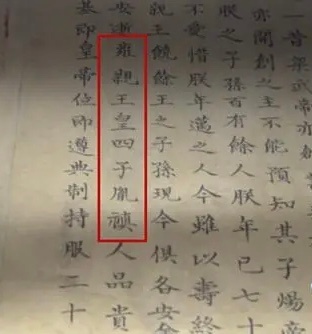 一昔梁武帝亦創
亦開創之主不能預知其子煬帝
朕之子孫百有餘人朕年已七十
不愛惜朕年邁之人今雖以壽終
親王饒餘王之子孫現今俱各安全
安逝雍親王皇四子胤禛人品貴
基即皇帝位即遵典制持服二十